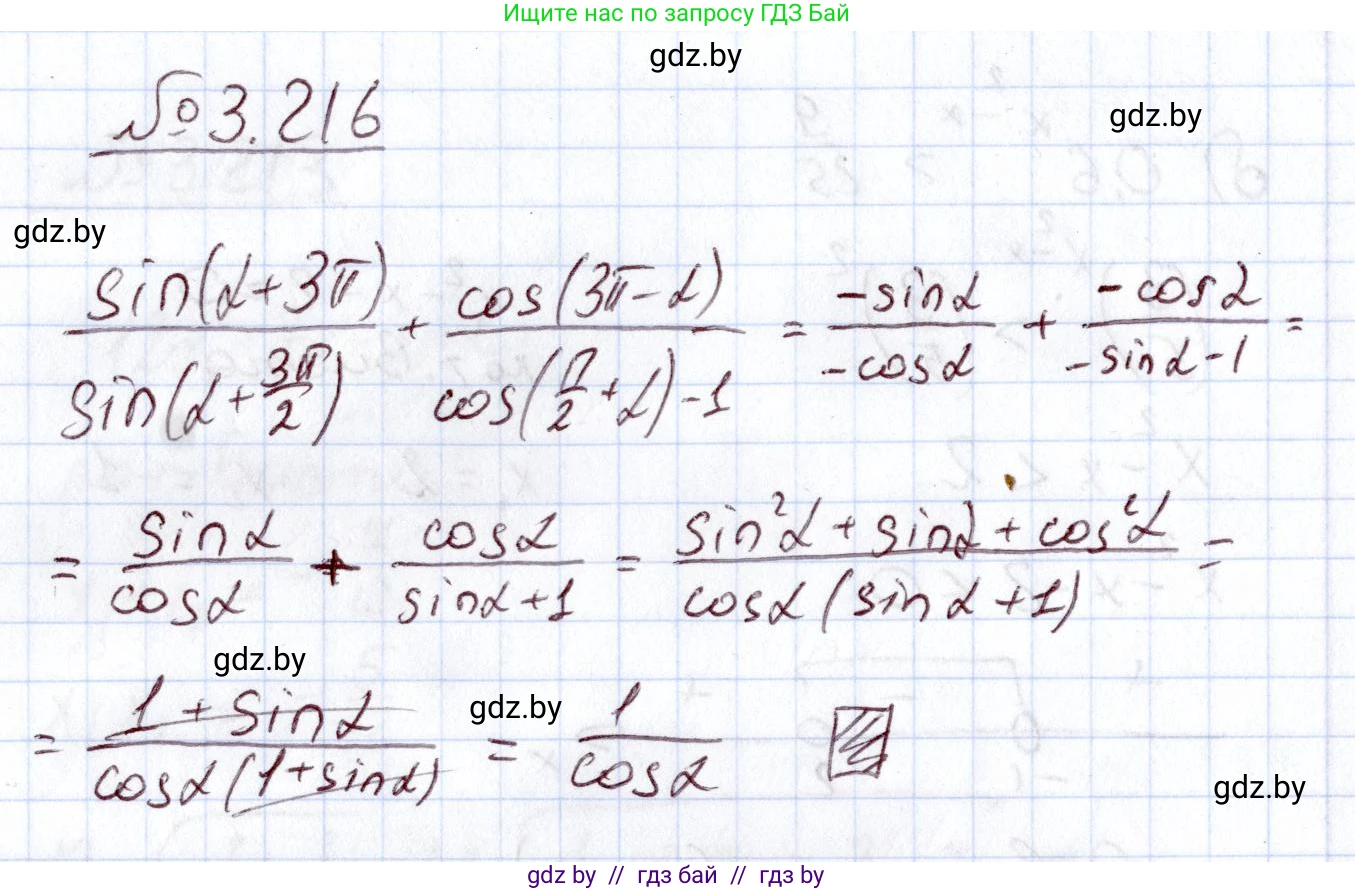 Ищите нас по запросу ГДЗ Бай
gdz.by
gdz.by
№ 3.216
gdz.by
sin(α+3π)/sin(α+3π/2) + cos(3π-α)/cos(π/2+α)-1 = -sinα/-cosα + -cosα/-sinα-1 =
= sinα/cosα + cosα/sinα+1 = sin²α + sinα + cos²α/cosα(sinα+1) =
gdz.by
gdz.by
= 1+sinα/cosα(1+sinα) = 1/cosα
gdz.by
gdz by // гдз бай // гдз by